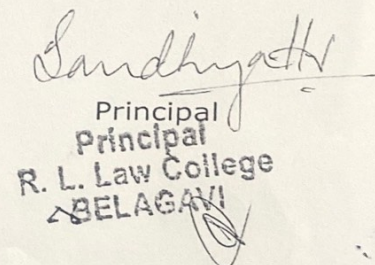 Principal
Principal
R. L. Law College
BELAGAVI